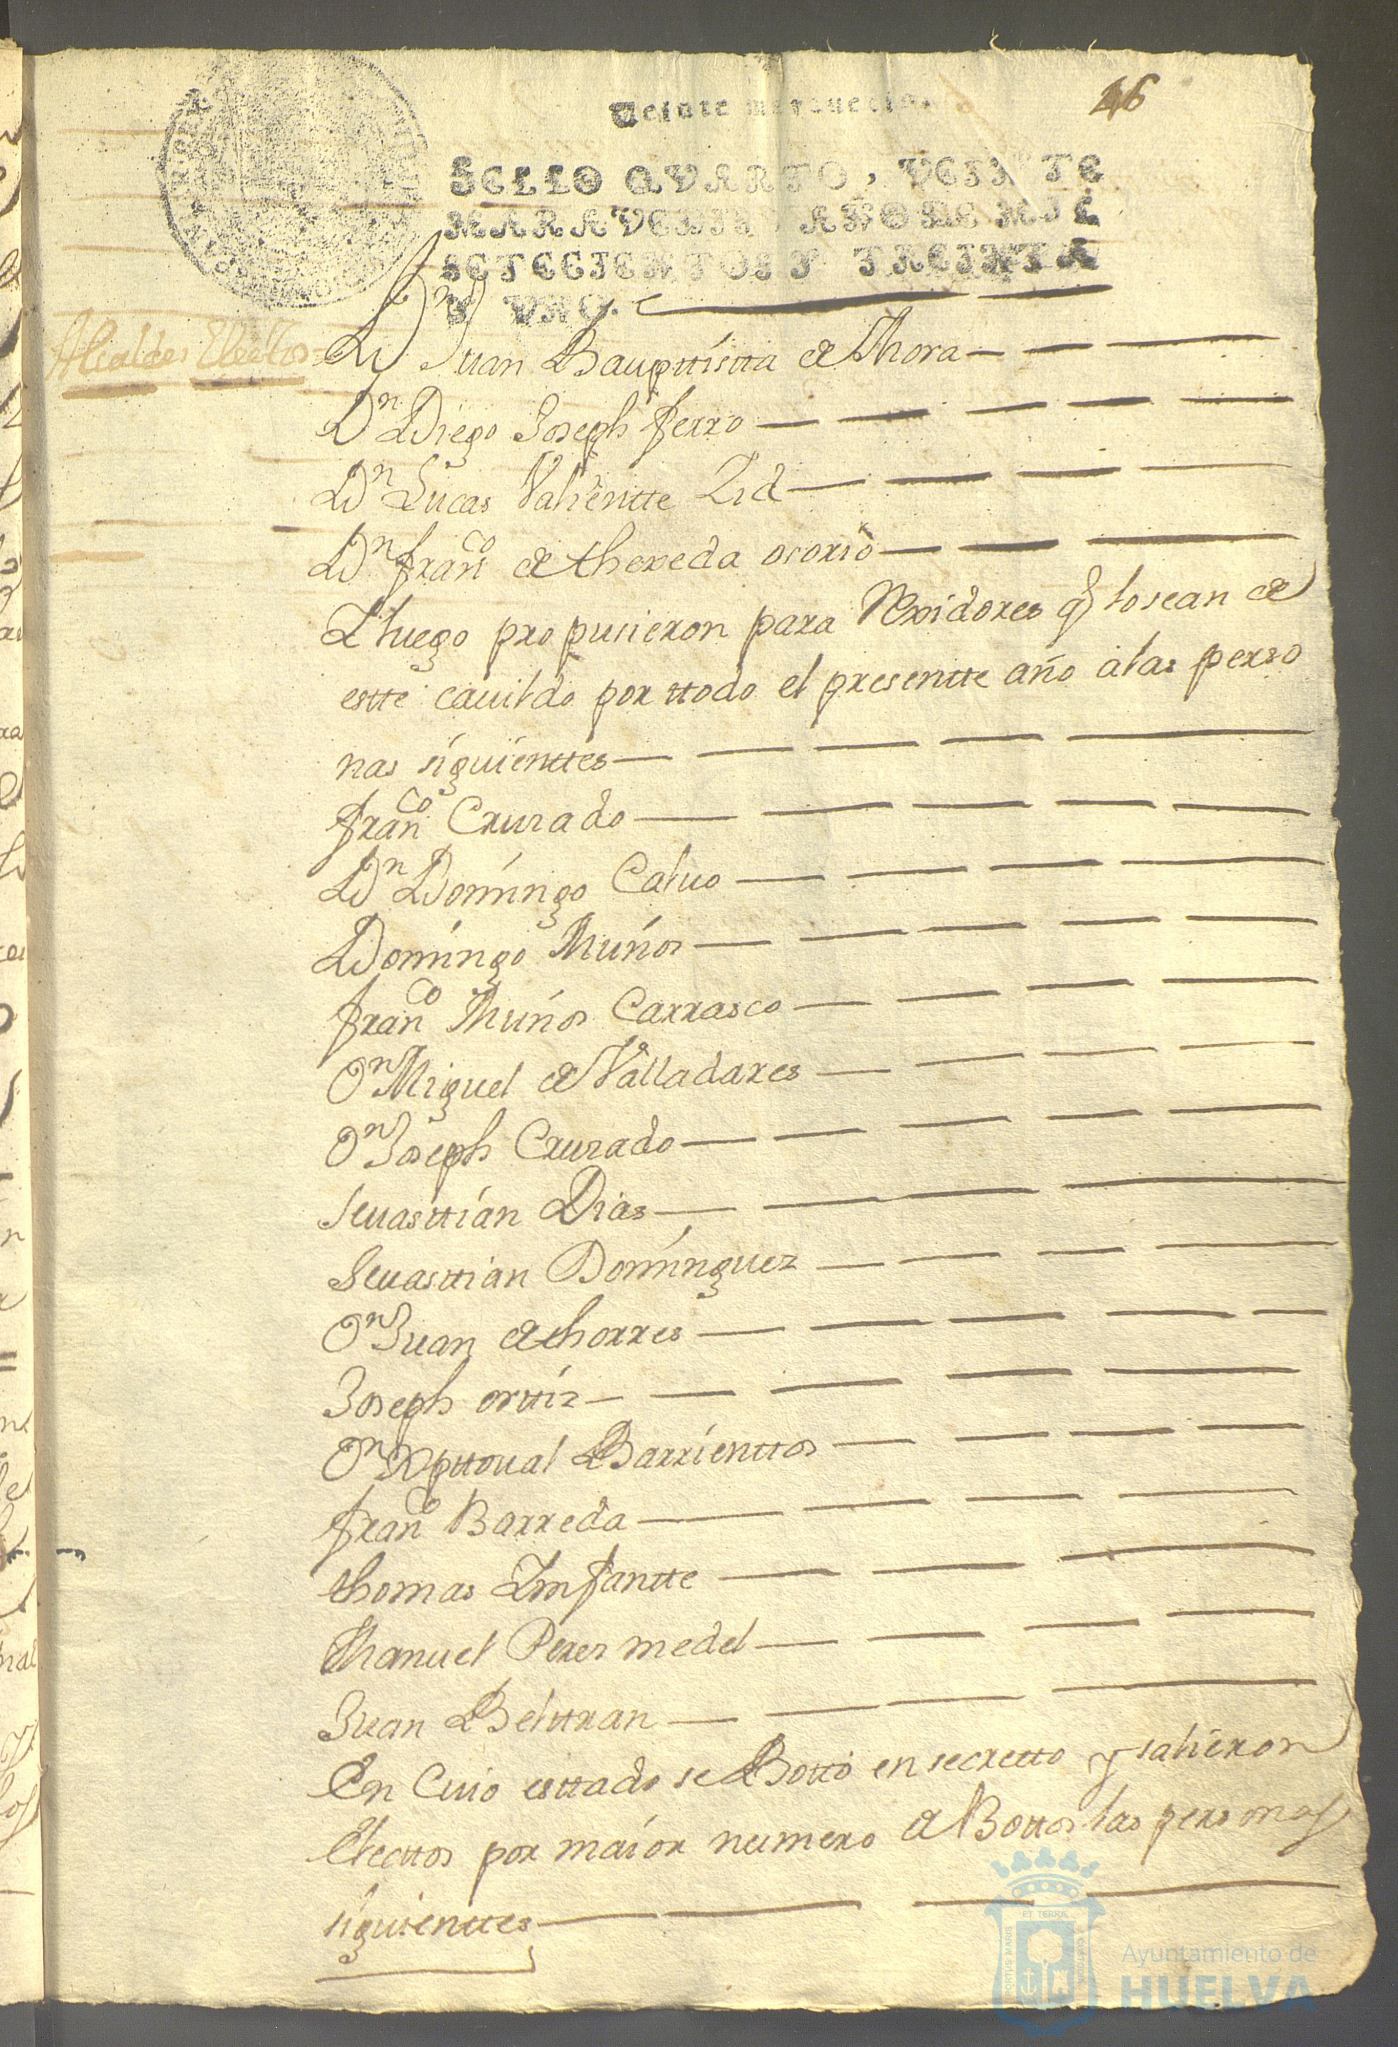 46
Veinte maravedis.
SELLO QVARTO, VEINTE
MARAVEDIS, AÑO DE MIL
SETECIENTOS Y TREINTA
Y VNO.
Alcaldes Electos
Dn Juan Baupttistta de Mora
Dn Diego Joseph fierro
Dn Lucas Valientte Zid
Dn franco de thexeda osorio
I luego propusieron para Rexidores q lo sean de
estte cauildo por ttodo el presentte año a las perso
nas siguienttes
franco Cruzado
Dn Domingo Caluo
Domingo Muños
franco Muños Carrasco
Dn Miguel de Valladares
Dn Joseph Cruzado
Seuasttian Dias
Seuasttian Dominguez
Dn Juan de thorres
Joseph orttiz
Dn Xpttoual Barrienttos
franco Barreda
thomas Infantte
Manuel Perez medel
Juan Belttran
En Cuio esttado se Botto en secretto y salieron
Electtos por maior numero de Bottos las personas
siguienttes
PORTUS MARIS ET TERRAE CUSTODIA
Ayuntamiento de
HUELVA